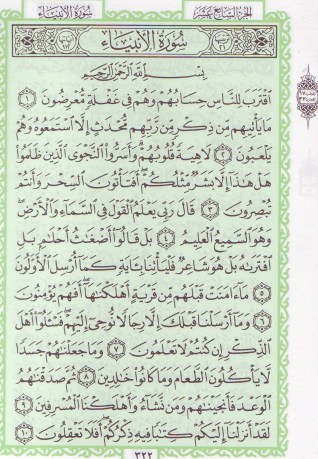 سُورَةُ الأَنبِيَاءِ
الجُزءُ السَّابِعَ عَشَرَ
سُورَةُ الأَنبِيَاءِ
بِسْمِ ٱللَّهِ ٱلرَّحْمَٰنِ ٱلرَّحِيمِ
ٱقْتَرَبَ لِلنَّاسِ حِسَابُهُمْ وَهُمْ فِى غَفْلَةٍ مُّعْرِضُونَ ١
مَا يَأْتِيهِم مِّن ذِكْرٍ مِّن رَّبِّهِم مُّحْدَثٍ إِلَّا ٱسْتَمَعُوهُ وَهُمْ
يَلْعَبُونَ ٢ لَاهِيَةً قُلُوبُهُمْ وَأَسَرُّوا۟ ٱلنَّجْوَى ٱلَّذِينَ ظَلَمُوا۟
هَلْ هَٰذَآ إِلَّا بَشَرٌ مِّثْلُكُمْ أَفَتَأْتُونَ ٱلسِّحْرَ وَأَنتُمْ
تُبْصِرُونَ ٣ قَالَ رَبِّى يَعْلَمُ ٱلْقَوْلَ فِى ٱلسَّمَآءِ وَٱلْأَرْضِ
وَهُوَ ٱلسَّمِيعُ ٱلْعَلِيمُ ٤ بَلْ قَالُوٓا۟ أَضْغَٰثُ أَحْلَٰمٍۭ بَلِ
ٱفْتَرَىٰهُ بَلْ هُوَ شَاعِرٌ فَلْيَأْتِنَا بِـَٔايَةٍ كَمَآ أُرْسِلَ ٱلْأَوَّلُونَ
٥ مَآ ءَامَنَتْ قَبْلَهُم مِّن قَرْيَةٍ أَهْلَكْنَٰهَآ أَفَهُمْ يُؤْمِنُونَ
٦ وَمَآ أَرْسَلْنَا قَبْلَكَ إِلَّا رِجَالًا نُّوحِىٓ إِلَيْهِمْ فَسْـَٔلُوٓا۟ أَهْلَ
ٱلذِّكْرِ إِن كُنتُمْ لَا تَعْلَمُونَ ٧ وَمَا جَعَلْنَٰهُمْ جَسَدًا
لَّا يَأْكُلُونَ ٱلطَّعَامَ وَمَا كَانُوا۟ خَٰلِدِينَ ٨ ثُمَّ صَدَقْنَٰهُمُ
ٱلْوَعْدَ فَأَنجَيْنَٰهُمْ وَمَن نَّشَآءُ وَأَهْلَكْنَا ٱلْمُسْرِفِينَ ٩
لَقَدْ أَنزَلْنَآ إِلَيْكُمْ كِتَٰبًا فِيهِ ذِكْرُكُمْ أَفَلَا تَعْقِلُونَ ١٠
٣٢٢